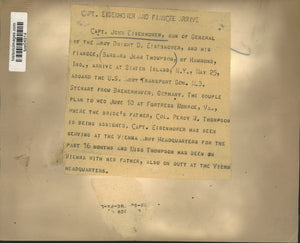 CAPT. EISENHOWER AND FIANCEE ARRIVE
CAPT. JOHN EISENHOWER, SON OF GENERAL
OF THE ARMY DWIGHT D. EISENHOWER, AND HIS
FIANCEE, (BARBARA JEAN THOMPSON) OF HAMMOND,
IND., ARRIVE AT STATEN ISLAND, N.Y., MAY 25,
ABOARD THE U.S. ARMY TRANSPORT GEN. M.B.
STEWART FROM BREMERHAVEN, GERMANY. THE COUPLE
PLAN TO WED JUNE 10 AT FORTRESS MONROE, VA.,
WHERE THE BRIDE'S FATHER, COL. PERCY W. THOMPSON
IS BEING ASSIGNED. CAPT. EISENHOWER HAS BEEN
SERVING AT THE VIENNA ARMY HEADQUARTERS FOR THE
PAST 16 MONTHS AND MISS THOMPSON HAS BEEN IN
VIENNA WITH HER FATHER, ALSO ON DUTY AT THE VIENNA
HEADQUARTERS.